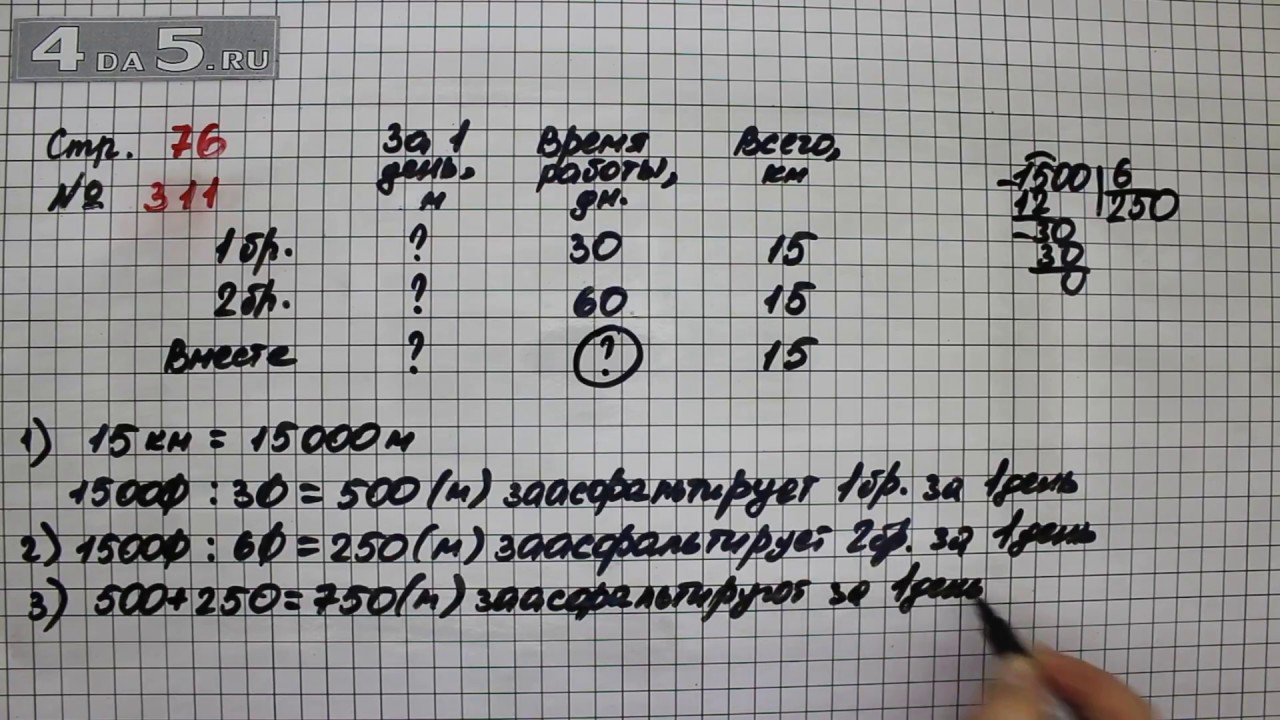 4 DA 5.RU
Стр. 76
№ 311
За 1 день, м
Время работы, дн.
Всего, км
1 бр. ? 30 15
2 бр. ? 60 15
Вместе ? ? 15
1500 6
12 250
30
30
0
1) 15 км = 15000 м
15000 : 30 = 500 (м) заасфальтирует 1 бр. за 1 день
2) 15000 : 60 = 250 (м) заасфальтирует 2 бр. за 1 день
3) 500 + 250 = 750 (м) заасфальтируют за 1 день